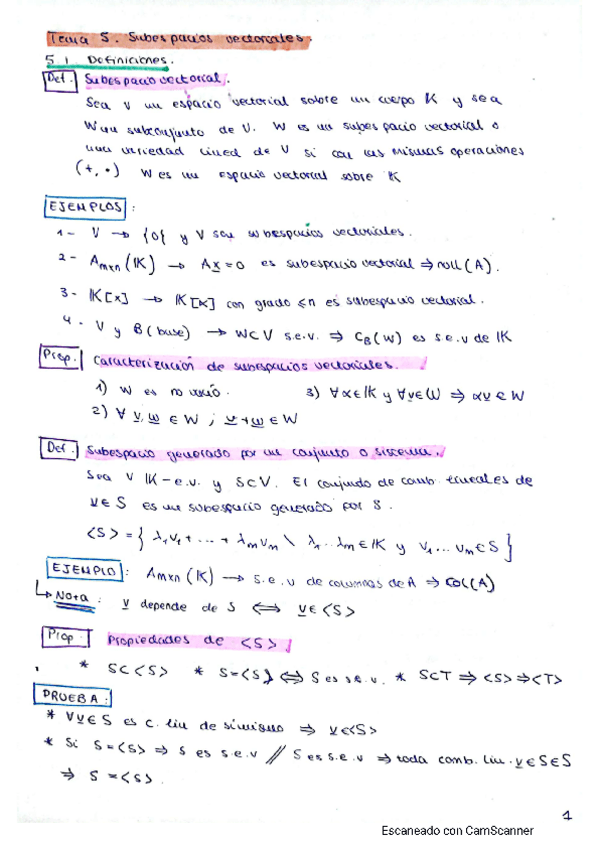 Tema 5. Subespacios vectoriales.
5.1 Definiciones.
Def. Subespacio vectorial.
Sea V un espacio vectorial sobre un cuerpo K y sea
W un subconjunto de V. W es un subespacio vectorial o
una variedad lineal de V si con las mismas operaciones
(+, ·) W es un espacio vectorial sobre K
EJEMPLOS:
1- V → {0} y V son subespacios vectoriales.
2- Amxn(K) → Ax=0 es subespacio vectorial ⇒ null(A).
3- K[x] → K[x] con grado ≤n es subespacio vectorial.
4- V y B(base) → W⊂V s.e.v. ⇒ C_B(W) es s.e.v de K
Prop. Caracterización de subespacios vectoriales.
1) W es no vacío. 3) ∀α∈K y ∀v∈W ⇒ αv∈W
2) ∀ v,w ∈ W ; v+w ∈ W
Def. Subespacio generado por un conjunto o sistema.
Sea V K-e.v. y S⊂V. El conjunto de comb. lineales de
v∈S es un subespacio generado por S.
<S> = { λ₁v₁ + ... + λmvm \ λ₁...λm∈K y v₁...vm∈S }
EJEMPLO: Amxn(K) → s.e.v de columnas de A ⇒ Col(A)
Nota: v depende de S ⟺ v∈<S>
Prop. Propiedades de <S>
* S⊂<S> * S=<S> ⟺ S es s.e.v. * S⊂T ⇒ <S>⇒<T>
PRUEBA:
* ∀v∈S es c. lin de sí mismo ⇒ v∈<S>
* Si S=<S> ⇒ S es s.e.v // S es s.e.v ⇒ toda comb. lin. v∈S∈S
⇒ S=<S>.
1
Escaneado con CamScanner